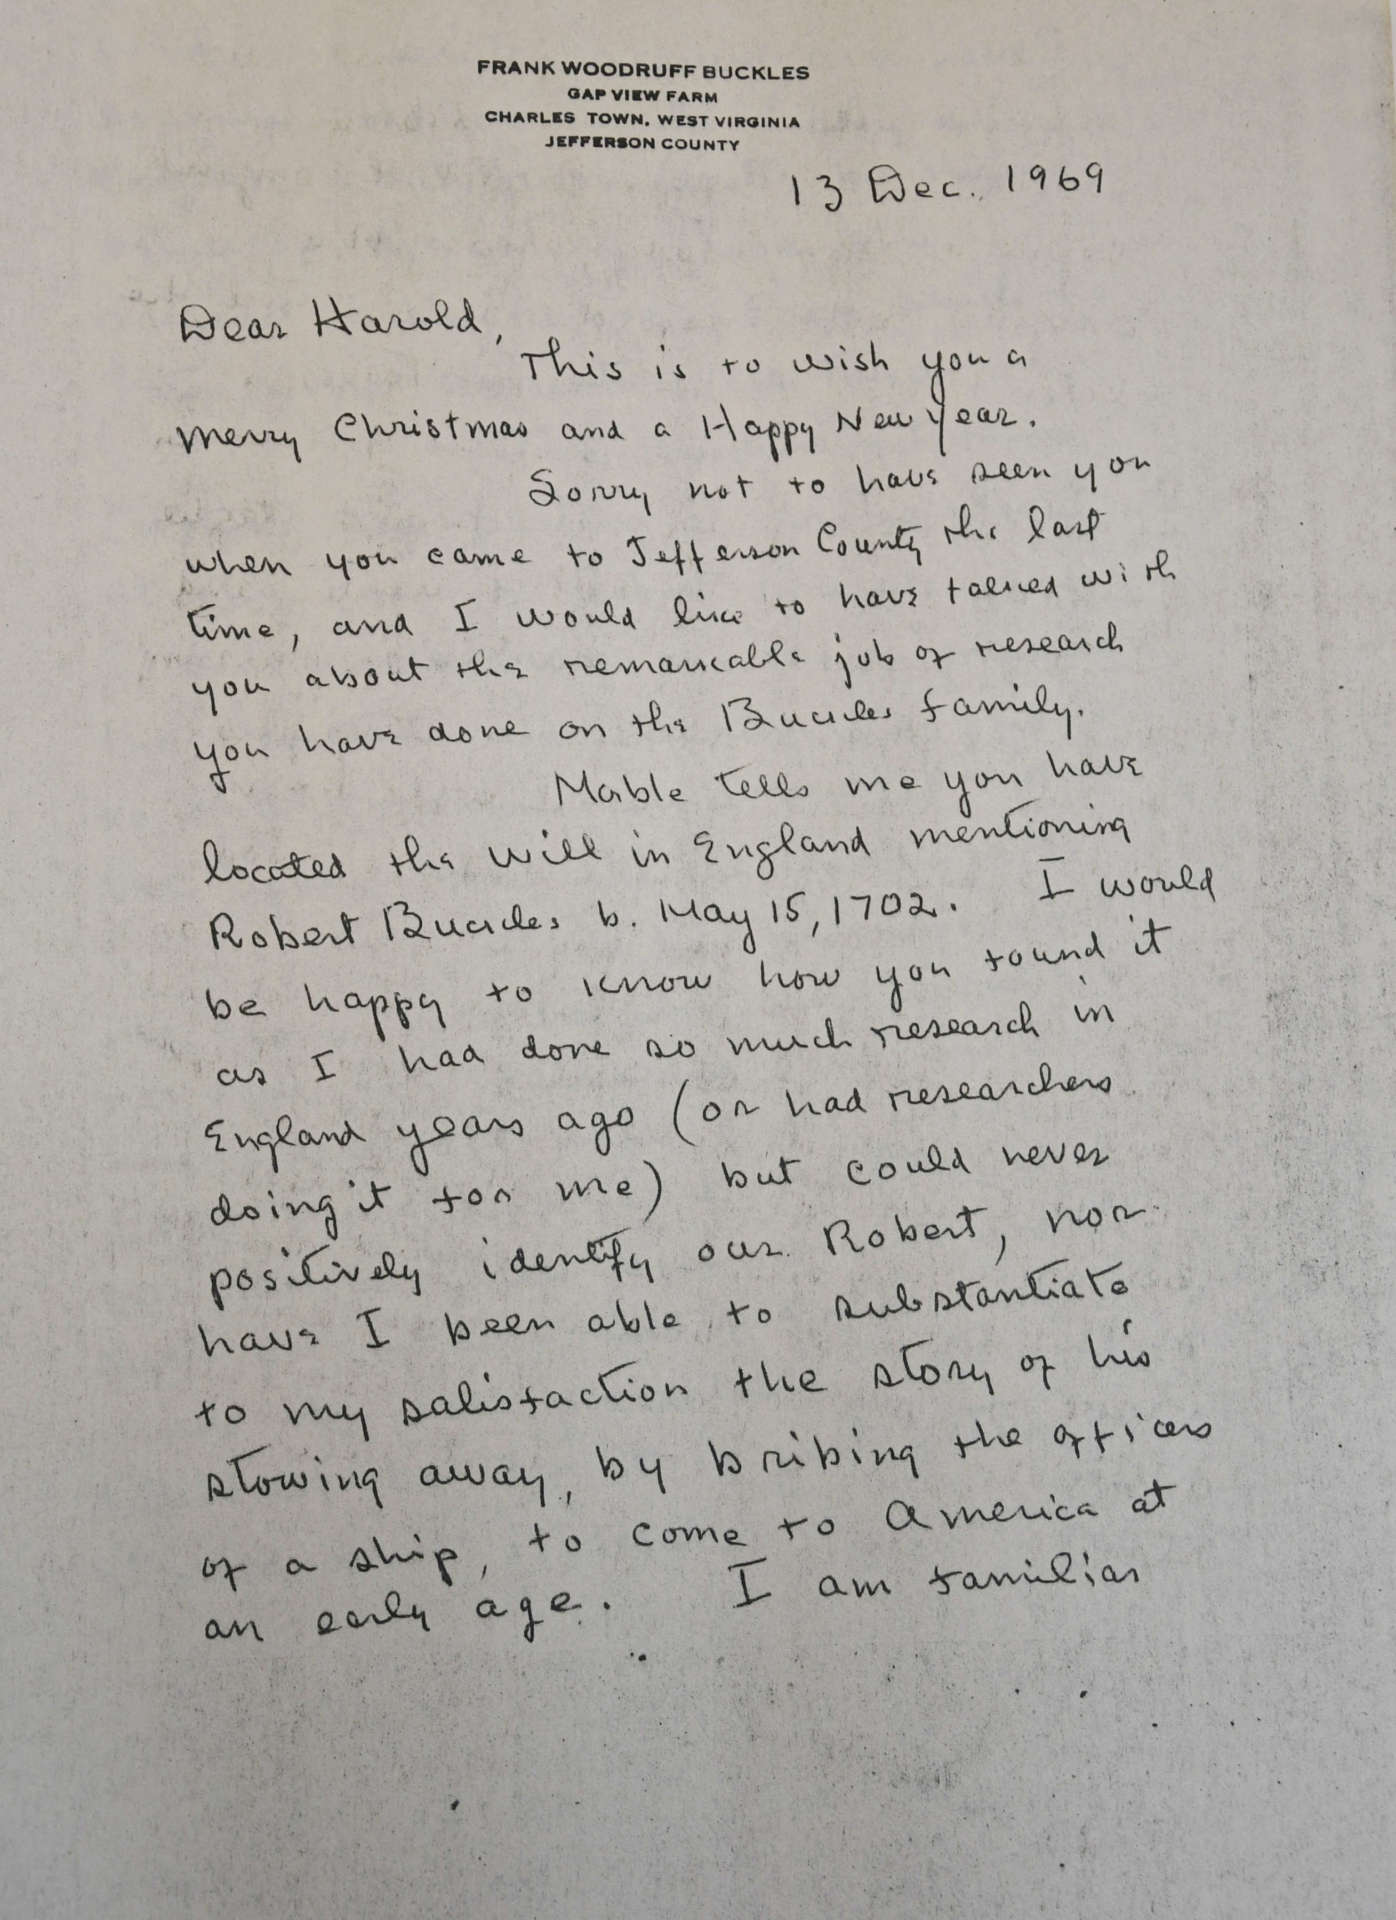 FRANK WOODRUFF BUCKLES
GAP VIEW FARM
CHARLES TOWN, WEST VIRGINIA
JEFFERSON COUNTY
13 Dec. 1969
Dear Harold,
This is to wish you a
Merry Christmas and a Happy New Year.
Sorry not to have seen you
when you came to Jefferson County the last
time, and I would like to have talked with
you about the remarkable job of research
you have done on the Buckles family.
Mable tells me you have
located the will in England mentioning
Robert Buckles b. May 15, 1702. I would
be happy to know how you found it
as I had done so much research in
England years ago (or had researchers
doing it for me) but could never
positively identify our Robert, nor
have I been able to substantiate
to my satisfaction the story of his
stowing away, by bribing the officers
of a ship, to come to America at
an early age. I am familiar